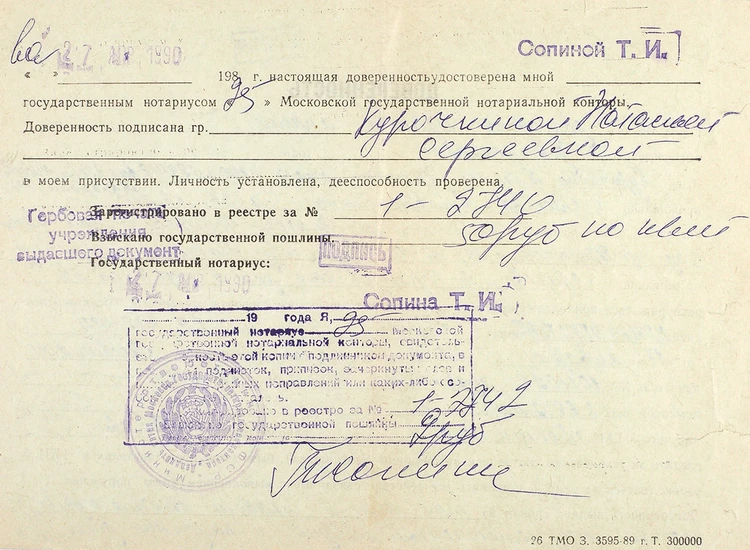 27 1990
Сопиной Т. И.
« » 198 г. настоящая доверенность удостоверена мной
государственным нотариусом « 95 » Московской государственной нотариальной конторы.
Доверенность подписана гр. Курочкиной Натальей
Сергеевной
в моем присутствии. Личность установлена, дееспособность проверена
Зарегистрировано в реестре за № 1-2740
Взыскано государственной пошлины: 50 руб по квит
Государственный нотариус: ПОДПИСЬ
Гербовая печать
учреждения
выдавшего документ
27 1990
Сопина Т. И.
19 года Я, 95 Московской
государственный нотариус
государственной нотариальной конторы, свидетель-
ность этой копии с подлинником документа, в
подчисток, приписок, зачеркнутых слов и
ных исправлений или каких-либо осо-
в реестре за № 1-2742
государственной пошлины 2 руб
26 ТМО З. 3595-89 г. Т. 300000